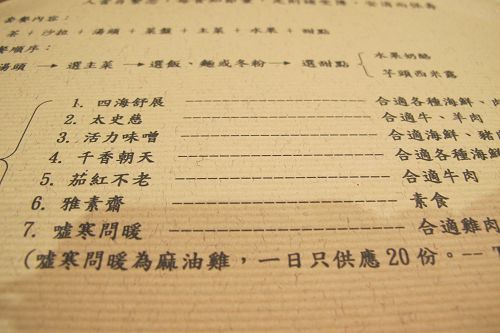 套餐內容：
茶 + 沙拉 + 湯頭 + 菜盤 + 主菜 + 水果 + 甜點
湯頭 → 選主菜 → 選飯、麵或冬粉 → 選甜點
水果奶酪
芋頭西米露
1. 四海舒展 ---------------- 合適各種海鮮、肉
2. 太史慈 ---------------- 合適牛、羊肉
3. 活力味噌 ---------------- 合適海鮮、豬肉
4. 千香朝天 ---------------- 合適各種海鮮
5. 茄紅不老 ---------------- 合適牛肉
6. 雅素齋 ---------------- 素食
7. 噓寒問暖 ---------------- 合適雞肉
(噓寒問暖為麻油雞，一日只供應20份。--